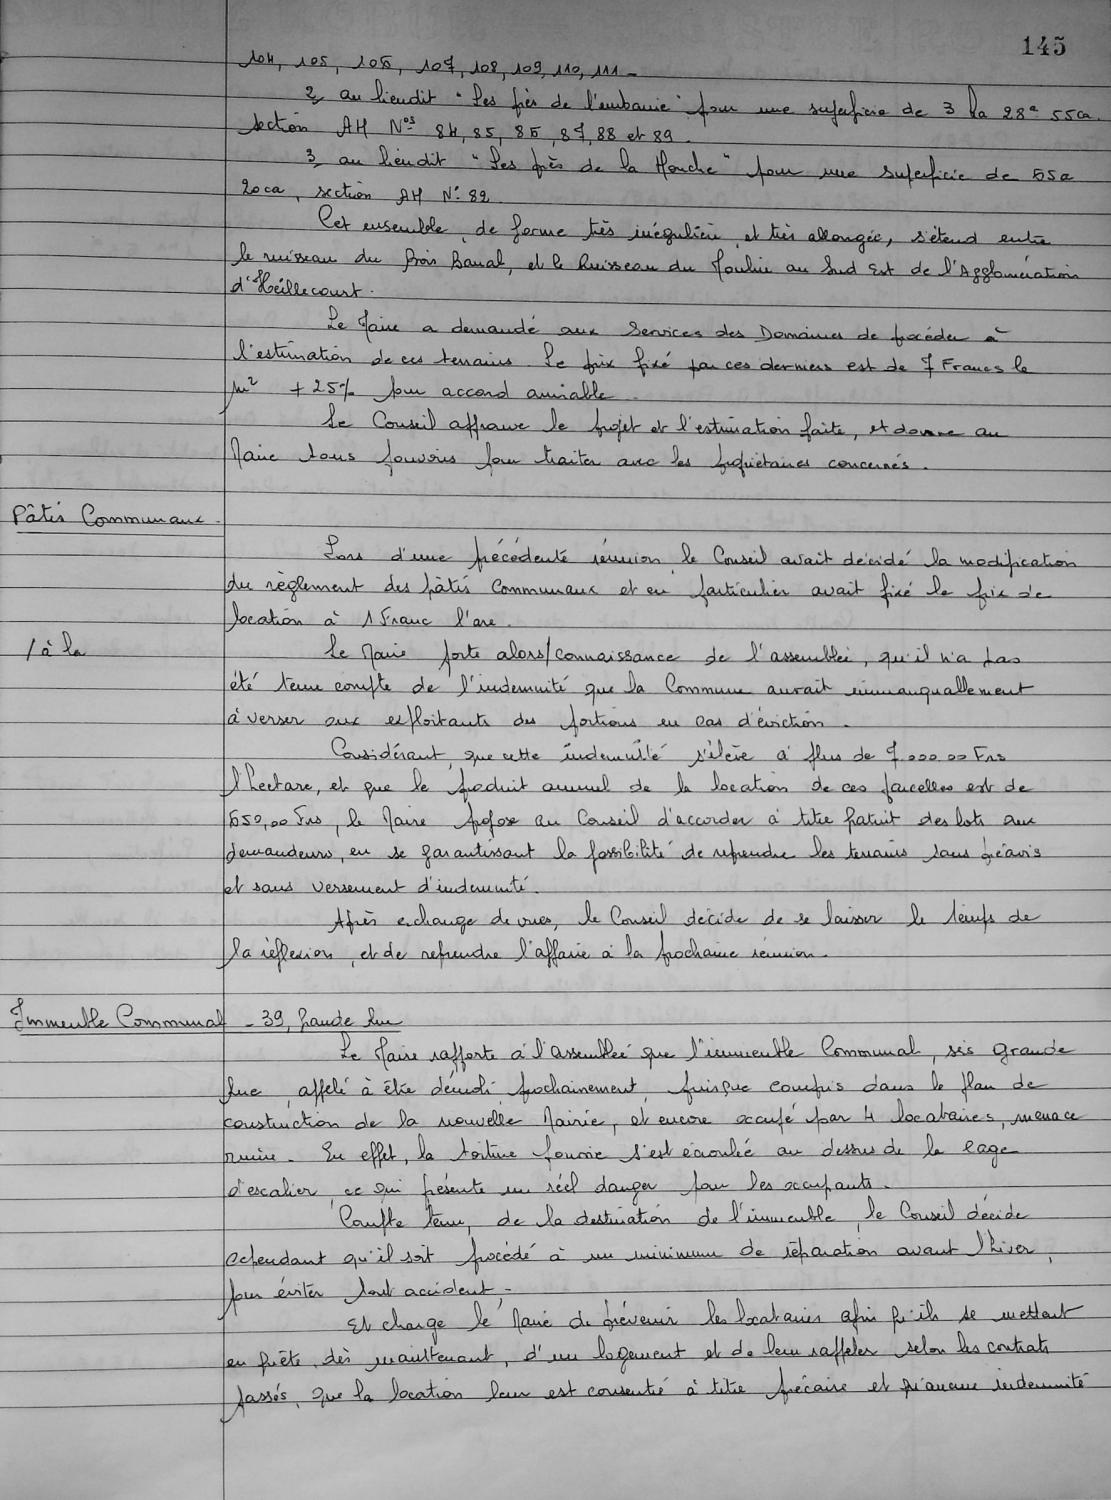 145
104, 105, 106, 107, 108, 109, 110, 111 -
2, au lieudit "Les près de l'embanie" pour une superficie de 3 ha 28a 55ca.
section AH Nos 84, 85, 86, 87, 88 et 89.
3, au lieudit "Les près de la Houche" pour une superficie de 65a
20ca, section AH N° 82.
Cet ensemble, de forme très irrégulière, et très allongée, s'étend entre
le ruisseau du Bois Banal, et le Ruisseau du Moulin au Sud Est de l'Agglomération
d'Heillecourt.
Le Maire a demandé aux Services des Domaines de procéder à
l'estimation de ces terrains. Le prix fixé par ces derniers est de 7 Francs le
m² + 25% pour accord amiable.
Le Conseil approuve le projet et l'estimation faite, et donne au
Maire tous pouvoirs pour traiter avec les propriétaires concernés.
Pâtis Communaux.
Lors d'une précédente réunion, le Conseil avait décidé la modification
du règlement des pâtis Communaux et en particulier avait fixé le prix de
location à 1 Franc l'are.
/ à la
Le Maire porte alors/connaissance de l'assemblée, qu'il n'a pas
été tenu compte de l'indemnité que la Commune aurait immanquablement
à verser aux exploitants des portions en cas d'éviction.
Considérant, que cette indemnité s'élève à plus de 7.000.00 Frs
l'hectare, et que le produit annuel de la location de ces parcelles est de
650,00 Frs, le Maire propose au Conseil d'accorder à titre gratuit des lots aux
demandeurs, en se garantissant la possibilité de reprendre les terrains sans préavis
et sans versement d'indemnité.
Après échange de vues, le Conseil décide de se laisser le temps de
la réflexion, et de reprendre l'affaire à la prochaine réunion.
Immeuble Communal - 39, Grande Rue
Le Maire rapporte à l'assemblée que l'immeuble Communal, sis Grande
Rue, appelé à être démoli prochainement, puisque compris dans le plan de
construction de la nouvelle Mairie, et encore occupé par 4 locataires, menace
ruine. En effet, la toiture pourrie s'est écroulée au dessus de la cage
d'escalier, ce qui présente un réel danger pour les occupants.
Compte tenu, de la destination de l'immeuble, le Conseil décide
cependant qu'il soit procédé à un minimum de réparation avant l'hiver,
pour éviter tout accident, -
Et charge le Maire de prévenir les locataires afin qu'ils se mettent
en quête, dès maintenant, d'un logement et de leur rappeler selon les contrats
passés, que la location leur est consentie à titre précaire et qu'aucune indemnité